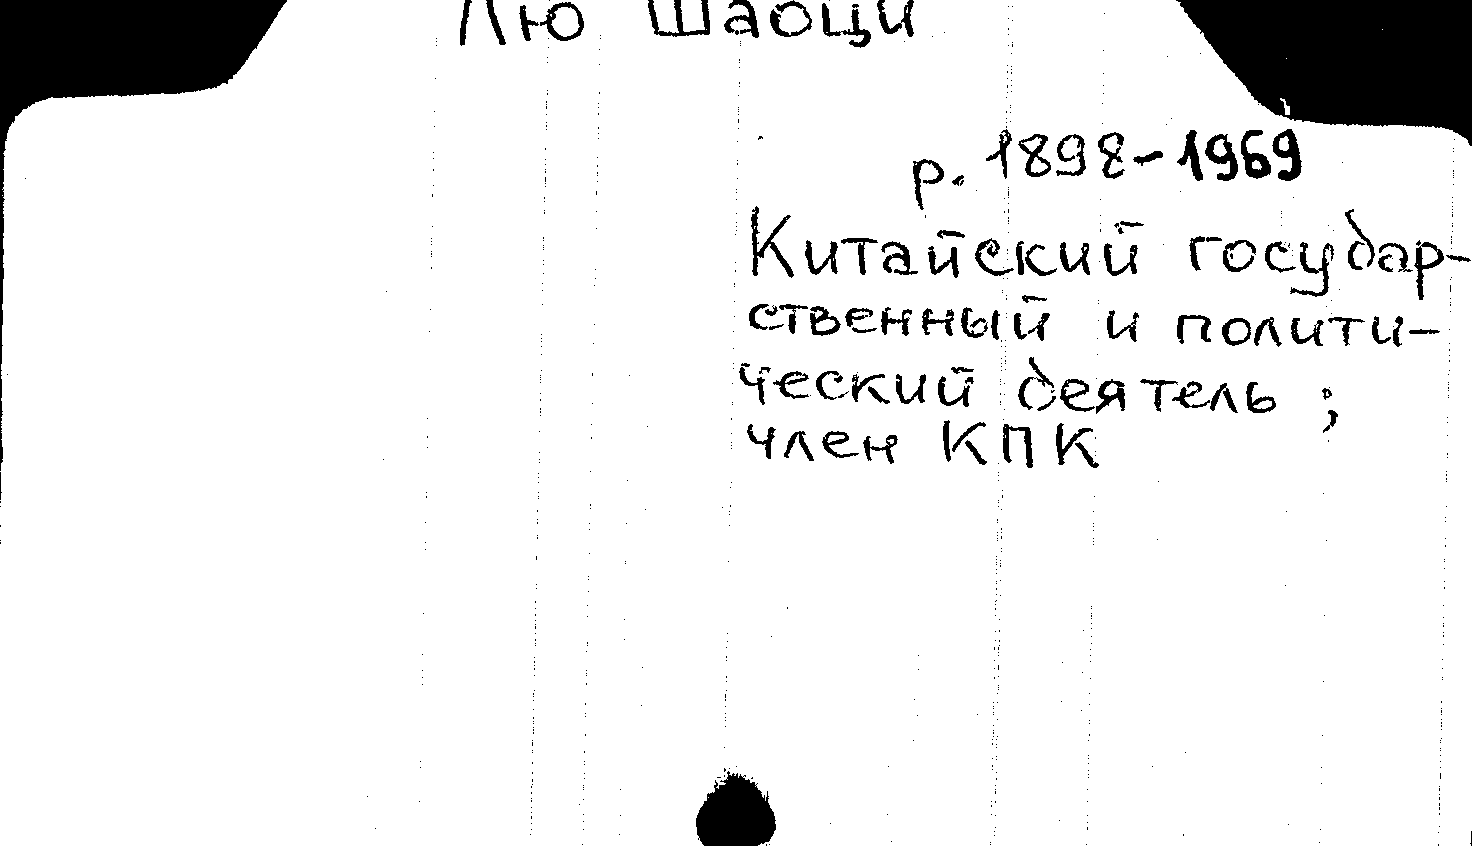 Лю Шаоци
р. 1898-1969
Китайский государ-
ственный и полити-
ческий деятель ;
член КПК